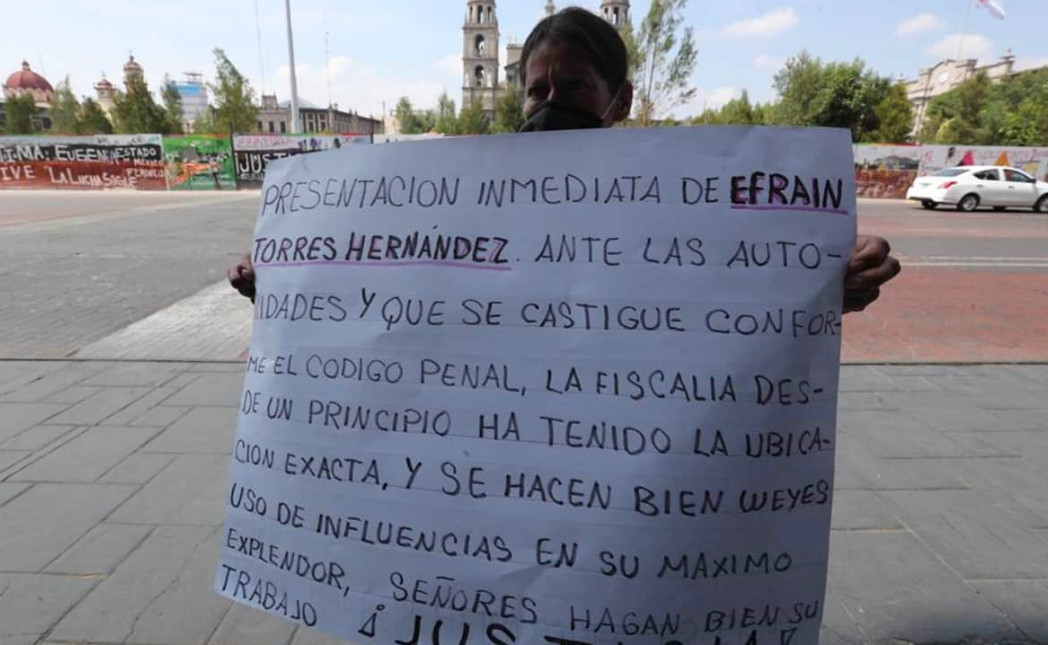 PRESENTACION INMEDIATA DE EFRAIN
TORRES HERNÁNDEZ. ANTE LAS AUTO-
IDADES Y QUE SE CASTIGUE CONFOR-
ME EL CODIGO PENAL, LA FISCALIA DES-
DE UN PRINCIPIO HA TENIDO LA UBICA-
CION EXACTA, Y SE HACEN BIEN WEYES
USO DE INFLUENCIAS EN SU MAXIMO
EXPLENDOR, SEÑORES HAGAN BIEN SU
TRABAJO ¡JUSTICIA!
EUGENIA ESTADO
MÉXICO
VE "LA LUCHA SIGUE
FEMINICIDA
JUST